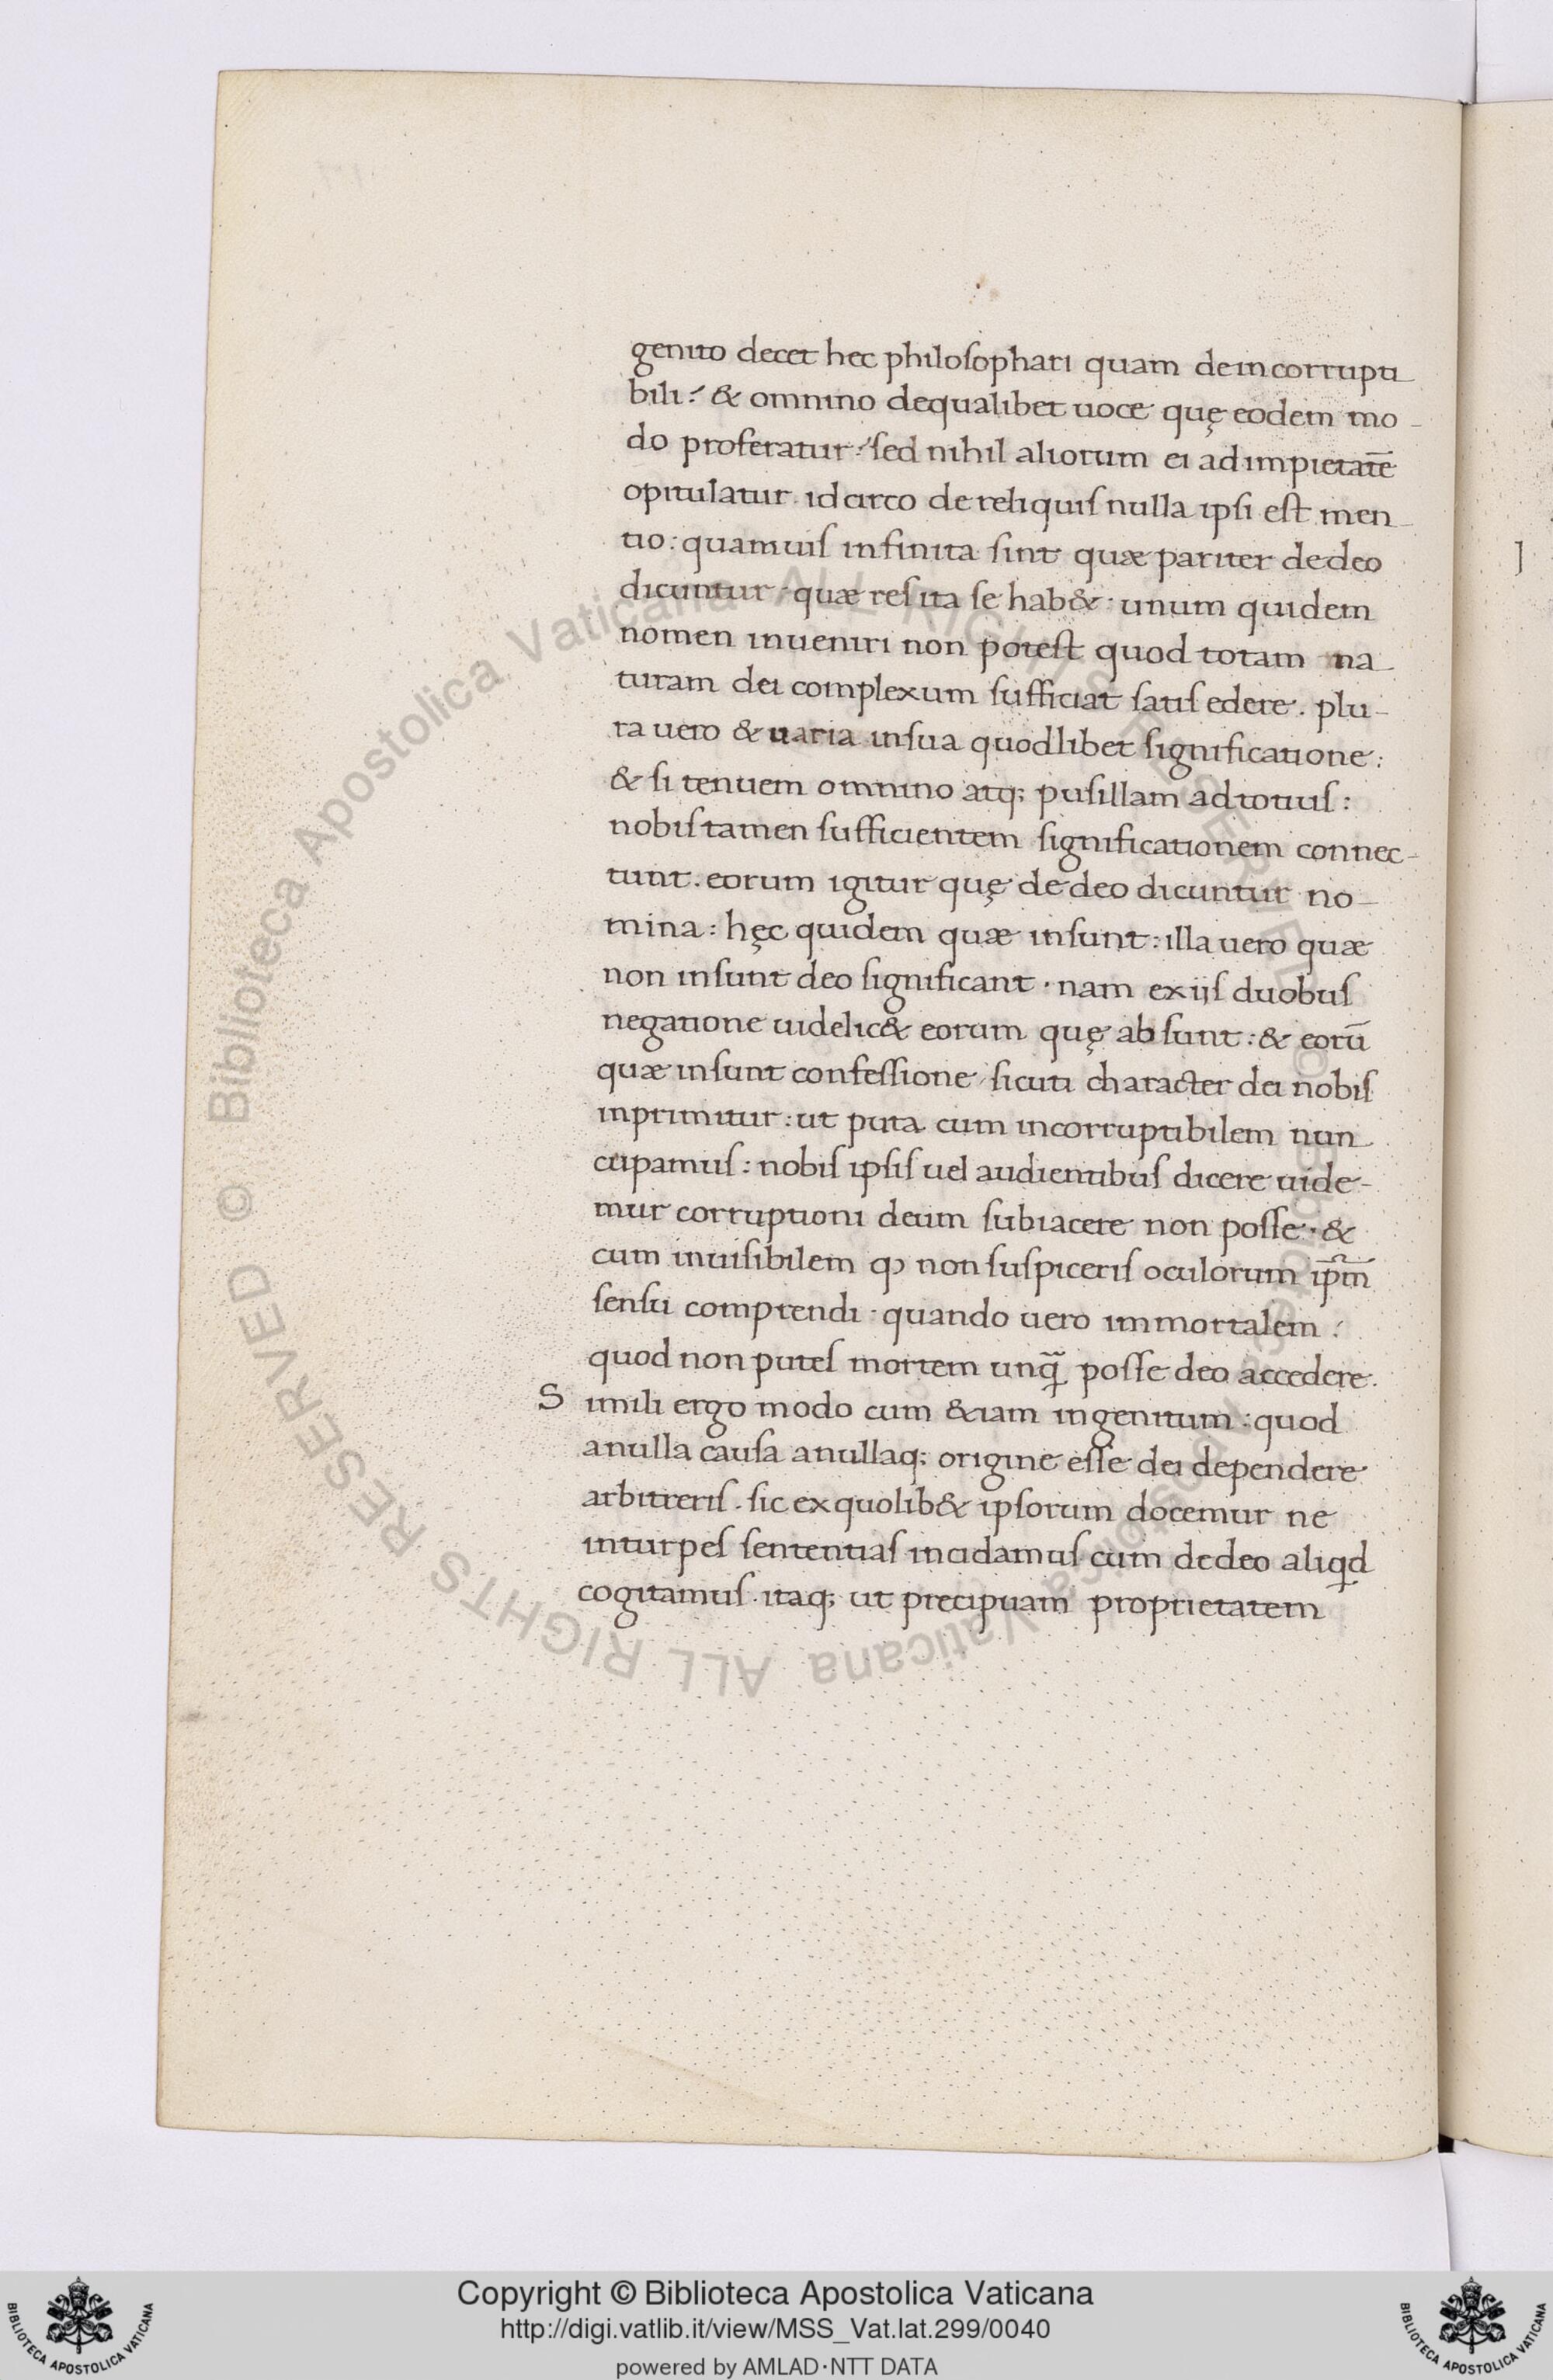 genito decet hec philosophari quam de incorrupti
bili? & omnino de qualibet uoce quę eodem mo-
do proferatur? sed nihil aliorum ei ad impietatē
opitulatur. idcirco de reliquis nulla ipsi est men-
tio: quamuis infinita sint quæ pariter de deo
dicuntur. quæ res ita se hab&. unum quidem
nomen inueniri non potest quod totam na-
turam dei complexum sufficiat satis edere. plu-
ra uero & uaria in sua quodlibet significatione:
& si tenuem omnino atq; pusillam ad totius:
nobis tamen sufficientem significationem connec-
tunt. eorum igitur quę de deo dicuntur no-
mina: hęc quidem quæ insunt: illa uero quæ
non insunt deo significant. nam ex ijs duobus
negatione uidelic& eorum quę absunt: & eorū
quæ insunt confessione, sicuti character dei nobis
inprimitur: ut puta cum incorruptibilem nun
cupamus: nobis ipsis uel audientibus dicere uide-
mur corruptioni deum subiacere non posse. &
cum inuisibilem ꝙ non suspiceris oculorum ip̄m
sensu comprendi. quando uero immortalem:
quod non putes mortem unq̄ posse deo accedere.
Simili ergo modo cum &iam ingenitum: quod
a nulla causa a nullaq; origine esse dei dependere
arbitreris. sic ex quolib& ipsorum docemur ne
in turpes sententias incidamus cum de deo aliqd
cogitamus. itaq; ut precipuam proprietatem
Copyright © Biblioteca Apostolica Vaticana
http://digi.vatlib.it/view/MSS_Vat.lat.299/0040
powered by AMLAD·NTT DATA
BIBLIOTECA APOSTOLICA VATICANA
BIBLIOTECA APOSTOLICA VATICANA
© Biblioteca Apostolica Vaticana ALL RIGHTS RESERVED
© Biblioteca Apostolica Vaticana ALL RIGHTS RESERVED